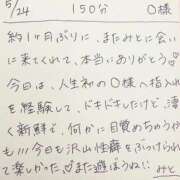 5/24 150分 O様
約1ヶ月ぶりに、またみとに会い
に来てくれて、本当にありがとう♡
今日は、人生初のO様へ指入れ
を経験して、ドキドキしたけど、凄
く新鮮で、何かに目覚めちゃうや
も!!!今日も沢山性癖をぶつけられ
て楽しかった♡また遊ぼうね!! みと